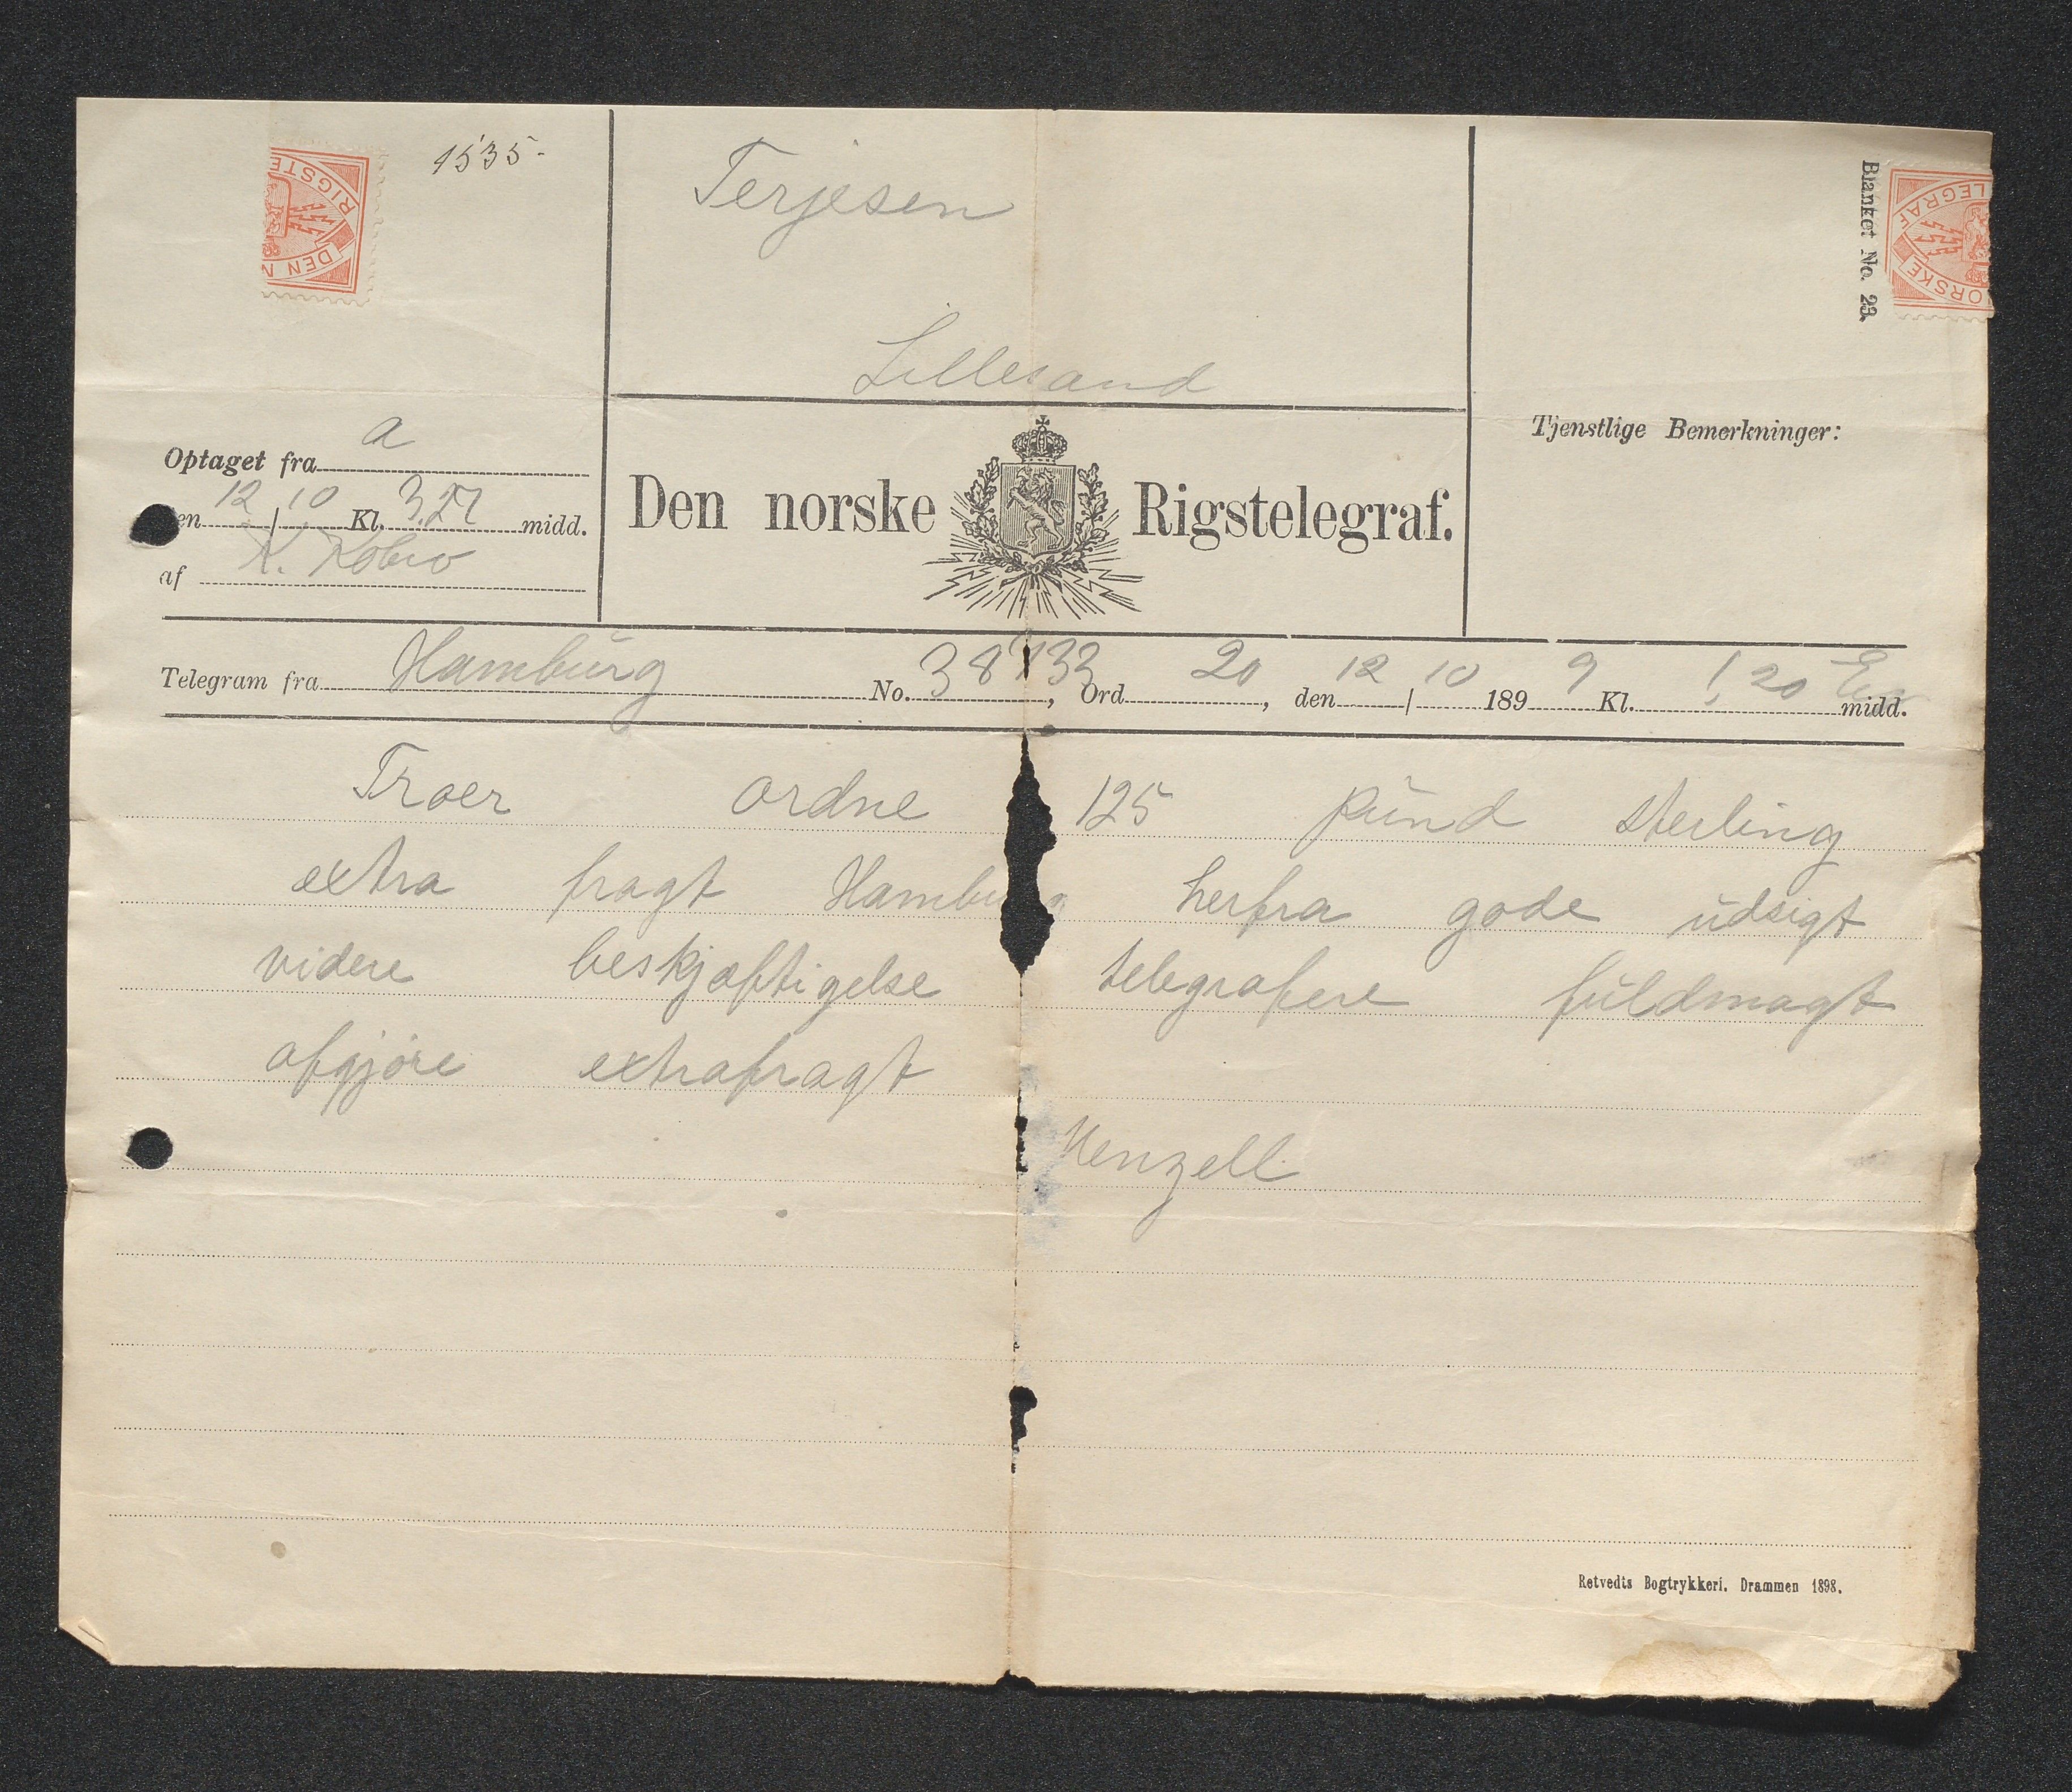 1535-
Terjesen
Lillesand
Blanket No. 23.
RIGSTE
DEN N
LEGRAF
ORSKE
Optaget fra a
en 12/10 Kl. 3.27 midd.
af K.
Den norske Rigstelegraf.
Tjenstlige Bemerkninger:
Telegram fra Hamburg No. 38733, Ord 20, den 12/10 1899 Kl. 1,20 E midd.
Troer ordne 125 pund sterling
extra fragt Hambu g herfra gode udsigt
videre beskjæftigelse telegrafere fuldmagt
afgjøre extrafragt
Menzell
Retvedts Bogtrykkeri. Drammen 1898.